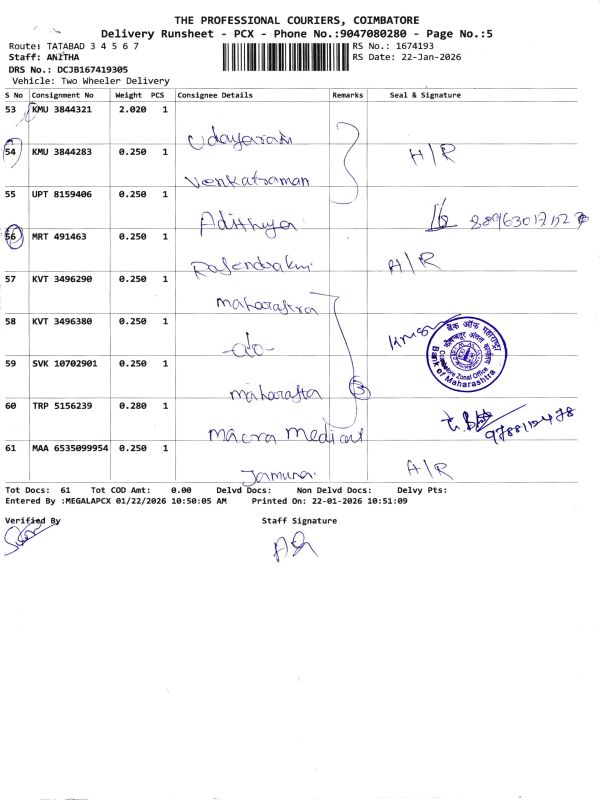 THE PROFESSIONAL COURIERS, COIMBATORE
Delivery Runsheet - PCX - Phone No.:9047080280 - Page No.:5
Route: TATABAD 3 4 5 6 7
RS No.: 1674193
Staff: ANITHA
RS Date: 22-Jan-2026
DRS No.: DCJB167419305
Vehicle: Two Wheeler Delivery
S No Consignment No Weight PCS Consignee Details Remarks Seal & Signature
53 KMU 3844321 2.020 1
Udayaram
54 KMU 3844283 0.250 1 H/R
Venkatraman
55 UPT 8159406 0.250 1
Adithya
56 MRT 491463 0.250 1
A/R
57 KVT 3496290 0.250 1
maharastra
58 KVT 3496380 0.250 1
-do-
बैंक ऑफ महाराष्ट्र
Coimbatore Zonal Office
Bank of Maharashtra
59 SVK 10702901 0.250 1
maharastra 3
60 TRP 5156239 0.280 1
macra medical
61 MAA 6535099954 0.250 1 A/R
Jamuna
Tot Docs: 61 Tot COD Amt: 0.00 Delvd Docs: Non Delvd Docs: Delvy Pts:
Entered By :MEGALAPCX 01/22/2026 10:50:05 AM Printed On: 22-01-2026 10:51:09
Verified By Staff Signature